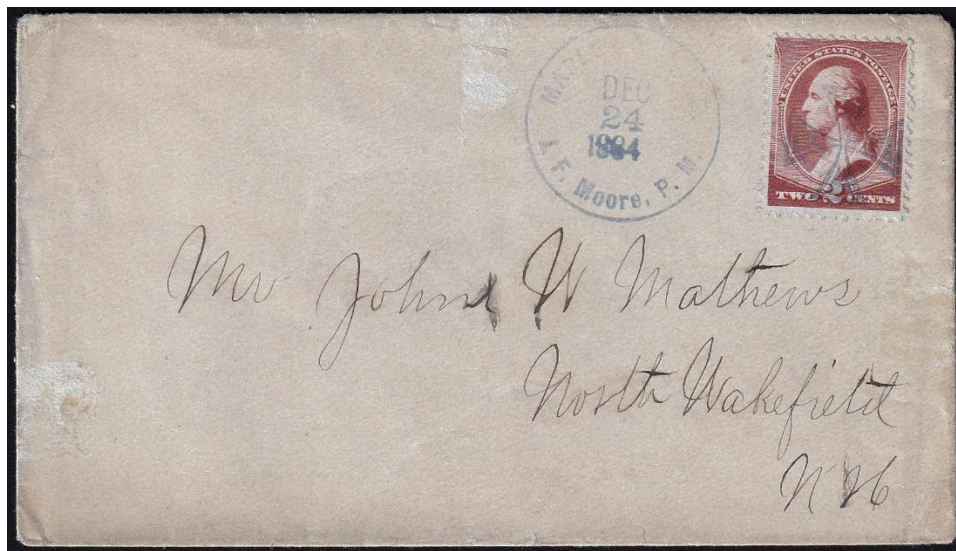 DEC
24
1884
J. F. Moore, P. M.
UNITED STATES POSTAGE
2
TWO CENTS
Mr John W Mathews
North Wakefield
N H